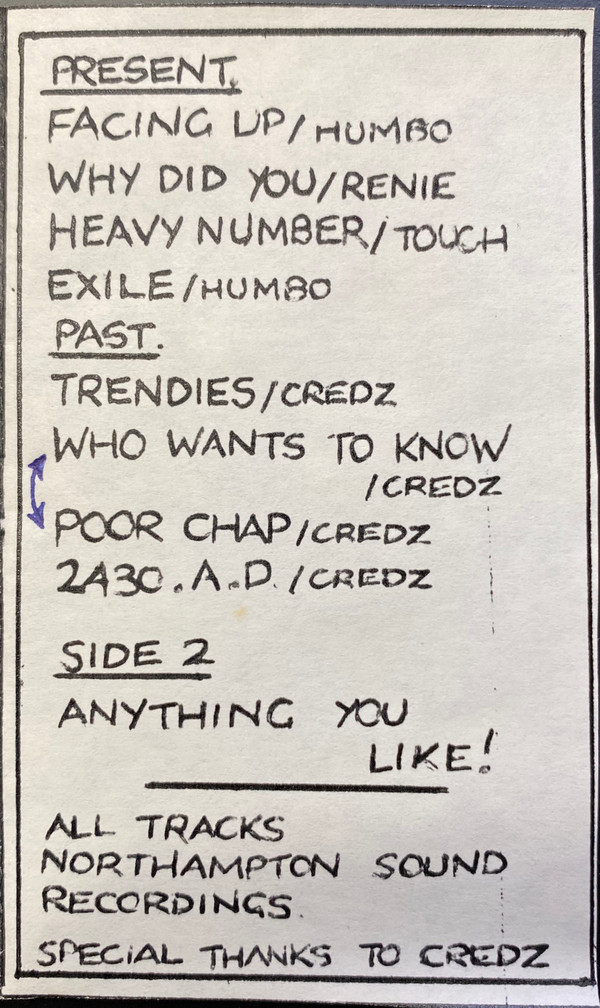 PRESENT.
FACING UP/HUMBO
WHY DID YOU/RENIE
HEAVY NUMBER/TOUCH
EXILE/HUMBO
PAST.
TRENDIES/CREDZ
WHO WANTS TO KNOW
/CREDZ
POOR CHAP/CREDZ
2430.A.D./CREDZ
SIDE 2
ANYTHING YOU
LIKE!
ALL TRACKS
NORTHAMPTON SOUND
RECORDINGS.
SPECIAL THANKS TO CREDZ